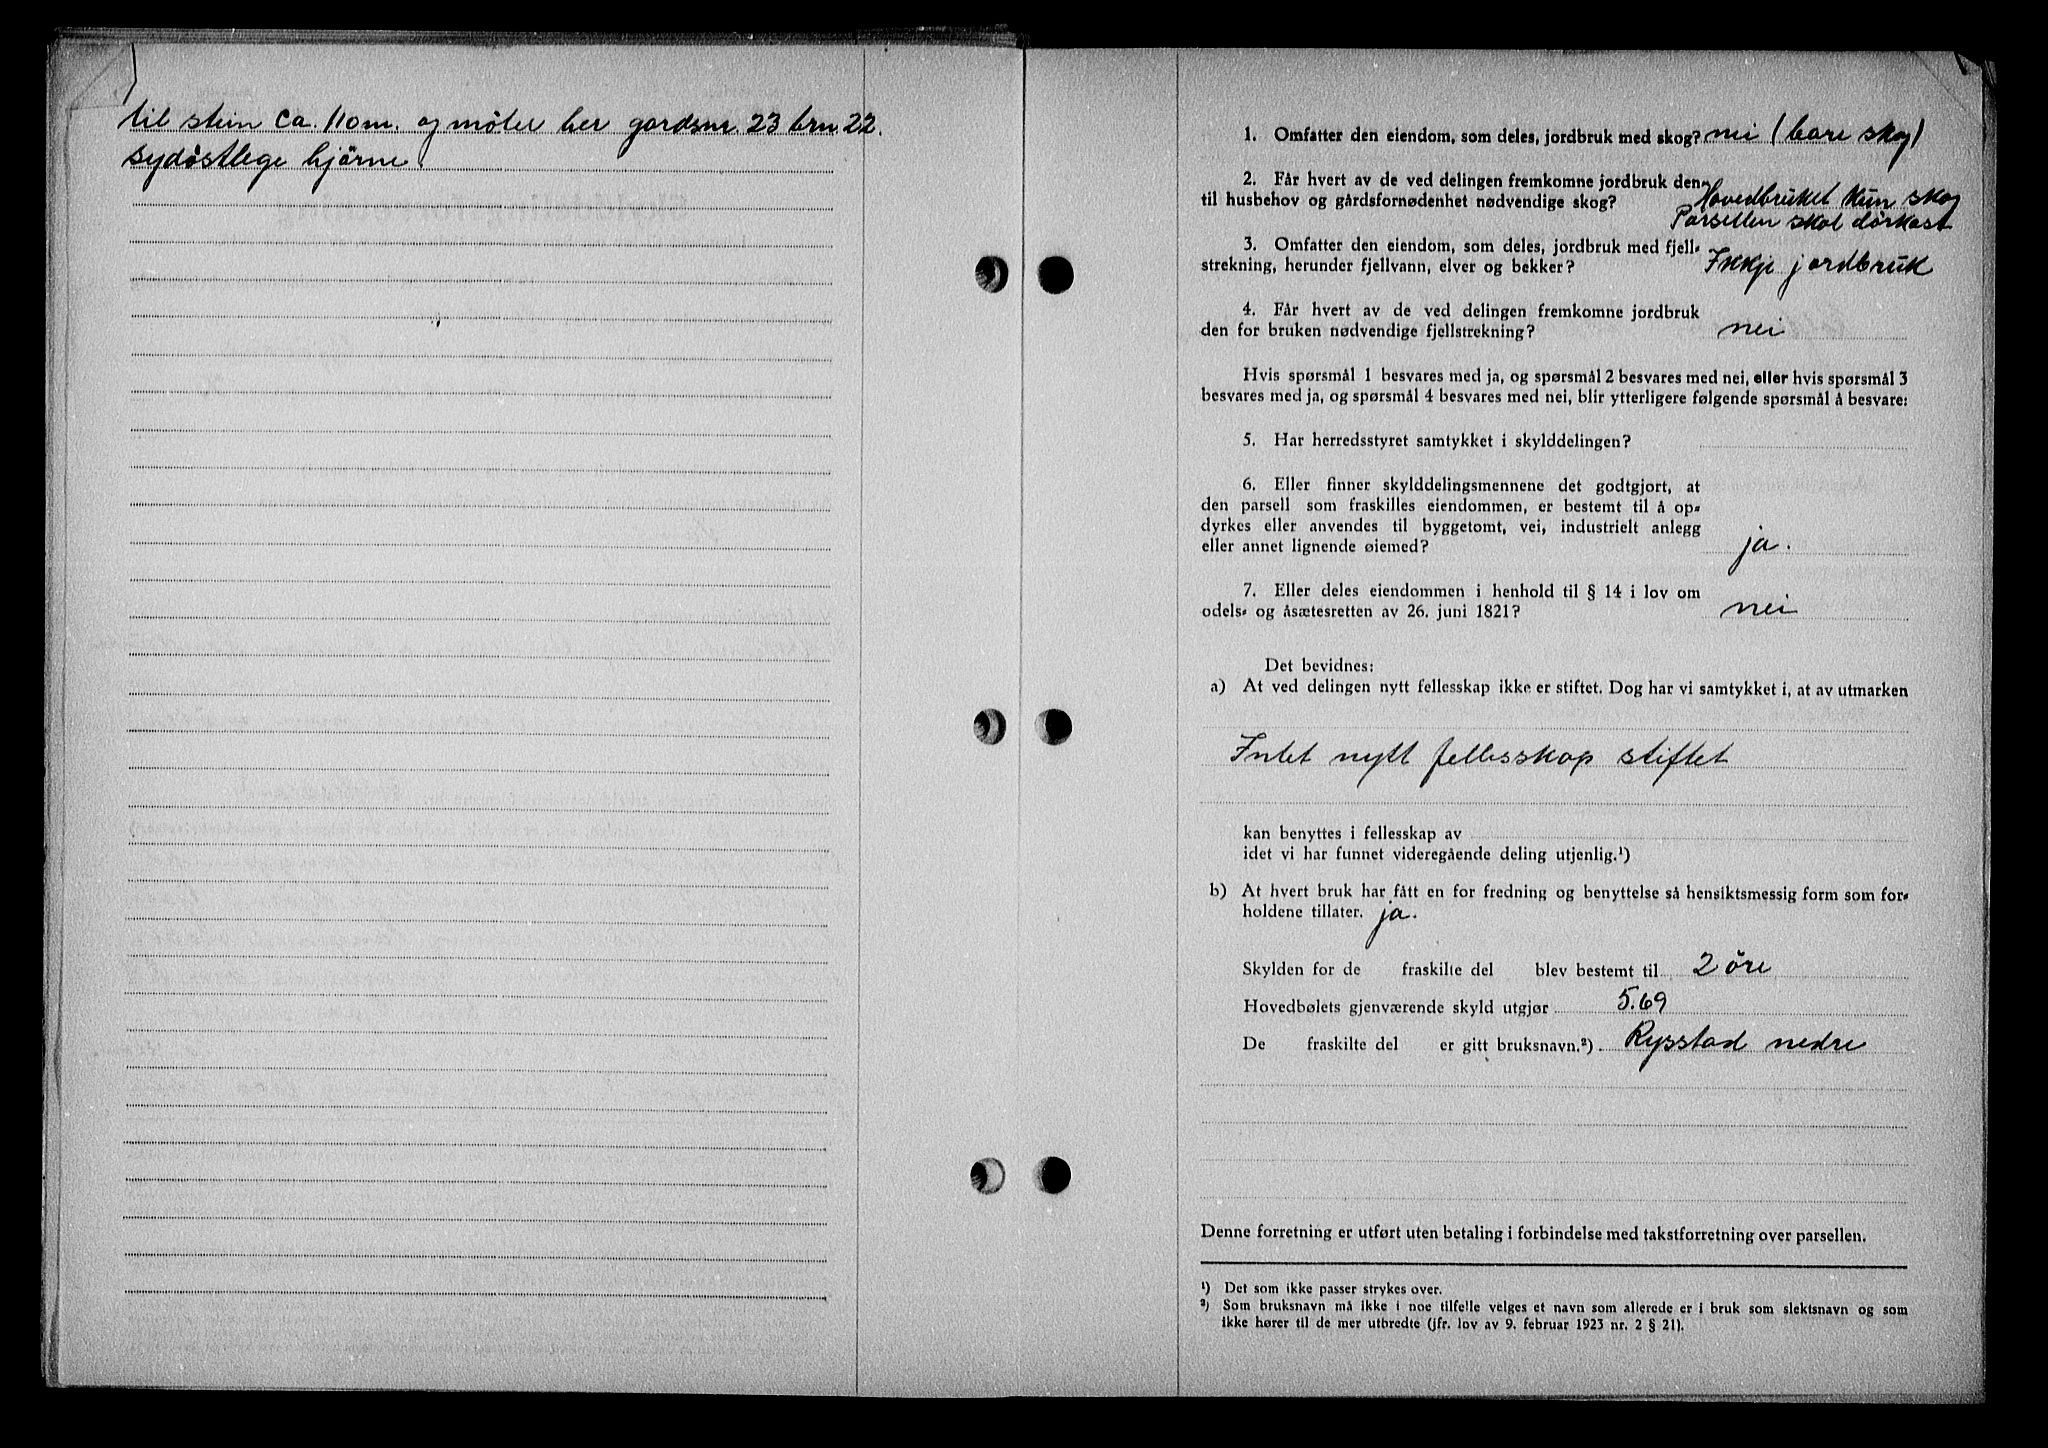 til stein ca. 110 m. og møter her gardsnr. 23 brn. 22.
sydöstlege hjörne.
1. Omfatter den eiendom, som deles, jordbruk med skog? nei (bare skog)
2. Får hvert av de ved delingen fremkomne jordbruk den
til husbehov og gårdsfornødenhet nødvendige skog? Hovedbruket kun skog
Parsellen skal dörkast
3. Omfatter den eiendom, som deles, jordbruk med fjell-
strekning, herunder fjellvann, elver og bekker? Ikkje jordbruk
4. Får hvert av de ved delingen fremkomne jordbruk
den for bruken nødvendige fjellstrekning? nei
Hvis spørsmål 1 besvares med ja, og spørsmål 2 besvares med nei, eller hvis spørsmål 3
besvares med ja, og spørsmål 4 besvares med nei, blir ytterligere følgende spørsmål å besvare:
5. Har herredsstyret samtykket i skylddelingen?
6. Eller finner skylddelingsmennene det godtgjort, at
den parsell som fraskilles eiendommen, er bestemt til å op-
dyrkes eller anvendes til byggetomt, vei, industrielt anlegg
eller annet lignende øiemed? ja.
7. Eller deles eiendommen i henhold til § 14 i lov om
odels- og åsætesretten av 26. juni 1821? nei
Det bevidnes:
a) At ved delingen nytt fellesskap ikke er stiftet. Dog har vi samtykket i, at av utmarken
Intet nytt fellesskap stiftet
kan benyttes i fellesskap av
idet vi har funnet videregående deling utjenlig.¹)
b) At hvert bruk har fått en for fredning og benyttelse så hensiktsmessig form som for-
holdene tillater. ja.
Skylden for de fraskilte del blev bestemt til 2 öre
Hovedbølets gjenværende skyld utgjør 5.69
De fraskilte del er gitt bruksnavn.²) Rysstad nedre
Denne forretning er utført uten betaling i forbindelse med takstforretning over parsellen.
¹) Det som ikke passer strykes over.
²) Som bruksnavn må ikke i noe tilfelle velges et navn som allerede er i bruk som slektsnavn og som
ikke hører til de mer utbredte (jfr. lov av 9. februar 1923 nr. 2 § 21).